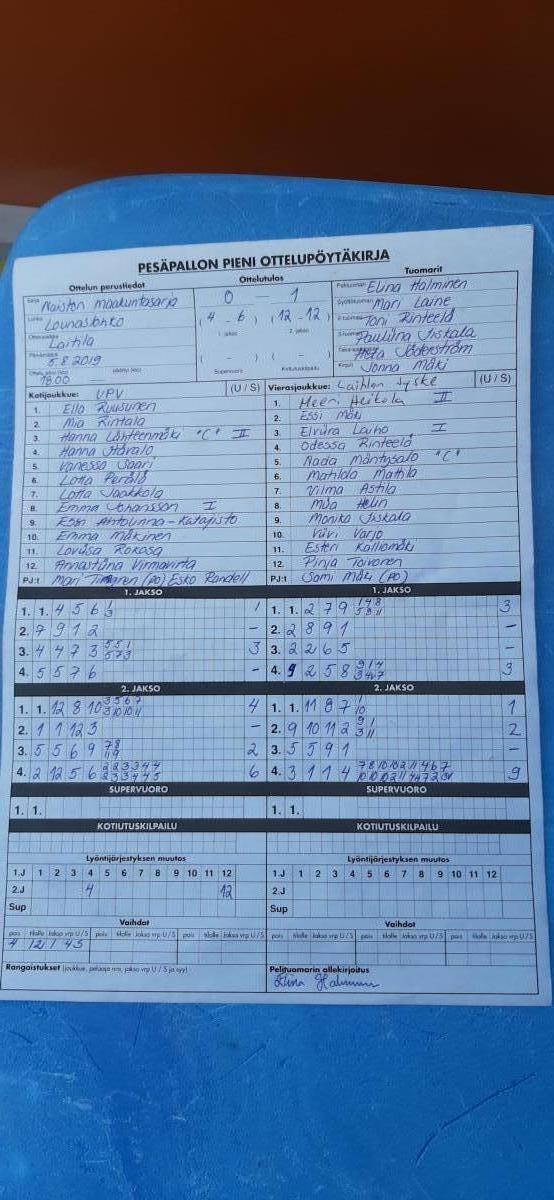 PESÄPALLON PIENI OTTELUPÖYTÄKIRJA
Ottelun perustiedot Ottelutulos Tuomarit
Sarja Naisten maakuntasarja 0 – 1 Pelituomari Elina Halminen
Lohko Lounaslohko (4 - 6) (12 - 12) Syöttötuomari Mari Laine
1. jakso 2. jakso
Laitila Toni Rinteelä
Pauliina Fiskala
5.8.2019 ( - ) ( - ) Heta Söderström
18.00 Supervuoro Kotiutuskilpailu Jonna Mäki
Kotijoukkue: UPV (U / S) Vierasjoukkue: Laihian Jyske (U / S)
1. Ella Ruusunen 1. Heikola II
2. Mia Rintala 2. Essi Mäki
3. Hanna Lähteenmäki "C" II 3. Elviira Laiho I
4. Hanna 4. Odessa Rinteelä
5. Vanessa Saari 5. Nada Mäntysalo "C"
6. Lotta Perälä 6. Matilda Mattila
7. Lotta Jaakkola 7. Vilma Astila
8. Emma Johansson I 8. Miia Helin
9. Essi Anttolinna-Katajisto 9. Monika Fiskala
10. Emma Mäkinen 10. Viivi Varjo
11. Loviisa Rokosa 11. Esteri Kalliomäki
12. Annastiina Virmavirta 12. Pinja Toivonen
PJ:t Mari (PO) Esko Randell PJ:t Sami Mäki (PO)
1. JAKSO 1. JAKSO
1. 1. 4 5 6 1 3 1 1. 1. 2 7 9 1 4 8 5 8 11 3
2. 7 9 1 2 – 2. 2 8 9 1 –
3. 4 4 7 3 5 5 1 5 7 3 3 3. 2 2 6 5 –
4. 5 5 7 6 – 4. 9 2 5 8 9 1 4 3 4 7 3
2. JAKSO 2. JAKSO
1. 1. 12 8 10 3 5 6 7 3 10 10 11 4 1. 1. 11 8 7 1 10 1
2. 1 1 12 3 – 2. 9 10 11 2 9 1 3 11 2
3. 5 5 6 9 7 8 11 9 2 3. 5 5 9 1 –
4. 2 12 5 6 2 2 3 3 4 4 2 3 3 4 4 5 6 4. 3 1 1 4 7 8 10 10 2 11 4 6 7 9
SUPERVUORO SUPERVUORO
1. 1. 1. 1.
KOTIUTUSKILPAILU KOTIUTUSKILPAILU
Lyöntijärjestyksen muutos Lyöntijärjestyksen muutos
1.J 1 2 3 4 5 6 7 8 9 10 11 12 1.J 1 2 3 4 5 6 7 8 9 10 11 12
2.J 4 12 2.J
Sup Sup
Vaihdot Vaihdot
pois tilalle Jakso vrp U / S pois tilalle Jakso vrp U / S pois tilalle Jakso vrp U / S pois tilalle Jakso vrp U / S pois tilalle Jakso vrp U / S pois tilalle Jakso vrp U / S
4 12 1 4 S
Rangaistukset (joukkue, pelaaja nro, jakso vrp U / S ja syy) Pelituomarin allekirjoitus
Elina Halminen